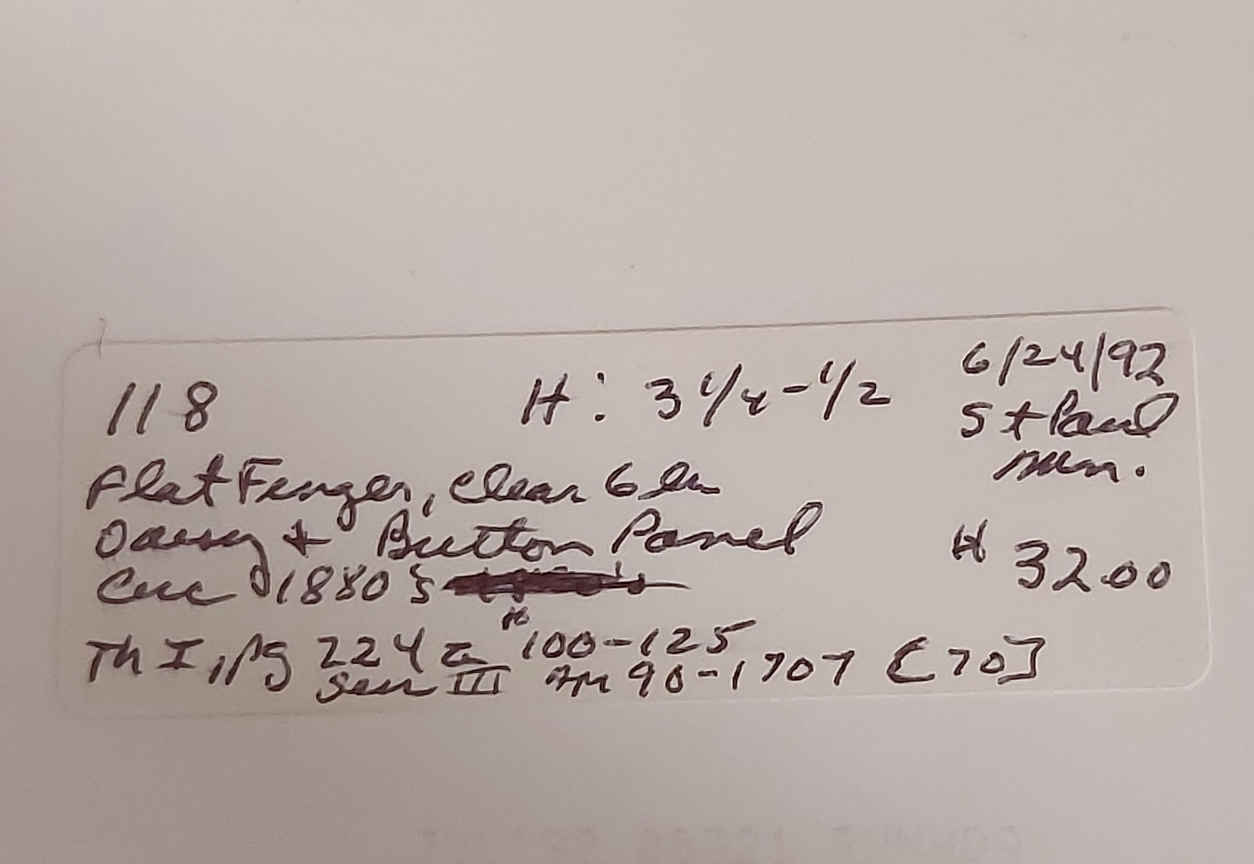 118 H: 3 1/4-1/2 6/24/92
St Paul
Minn.
Flat Finger, Clear
Daisy + Button Panel
Circ 1880's
32.00
Th I, pg 224 100-125
Ser III 90-1707 [70]